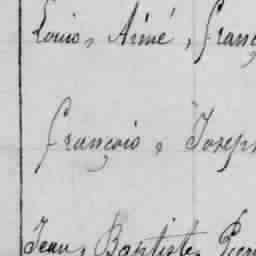 Louis, Aimé, Franç
François, Joseph
Jean, Baptiste, Pierr